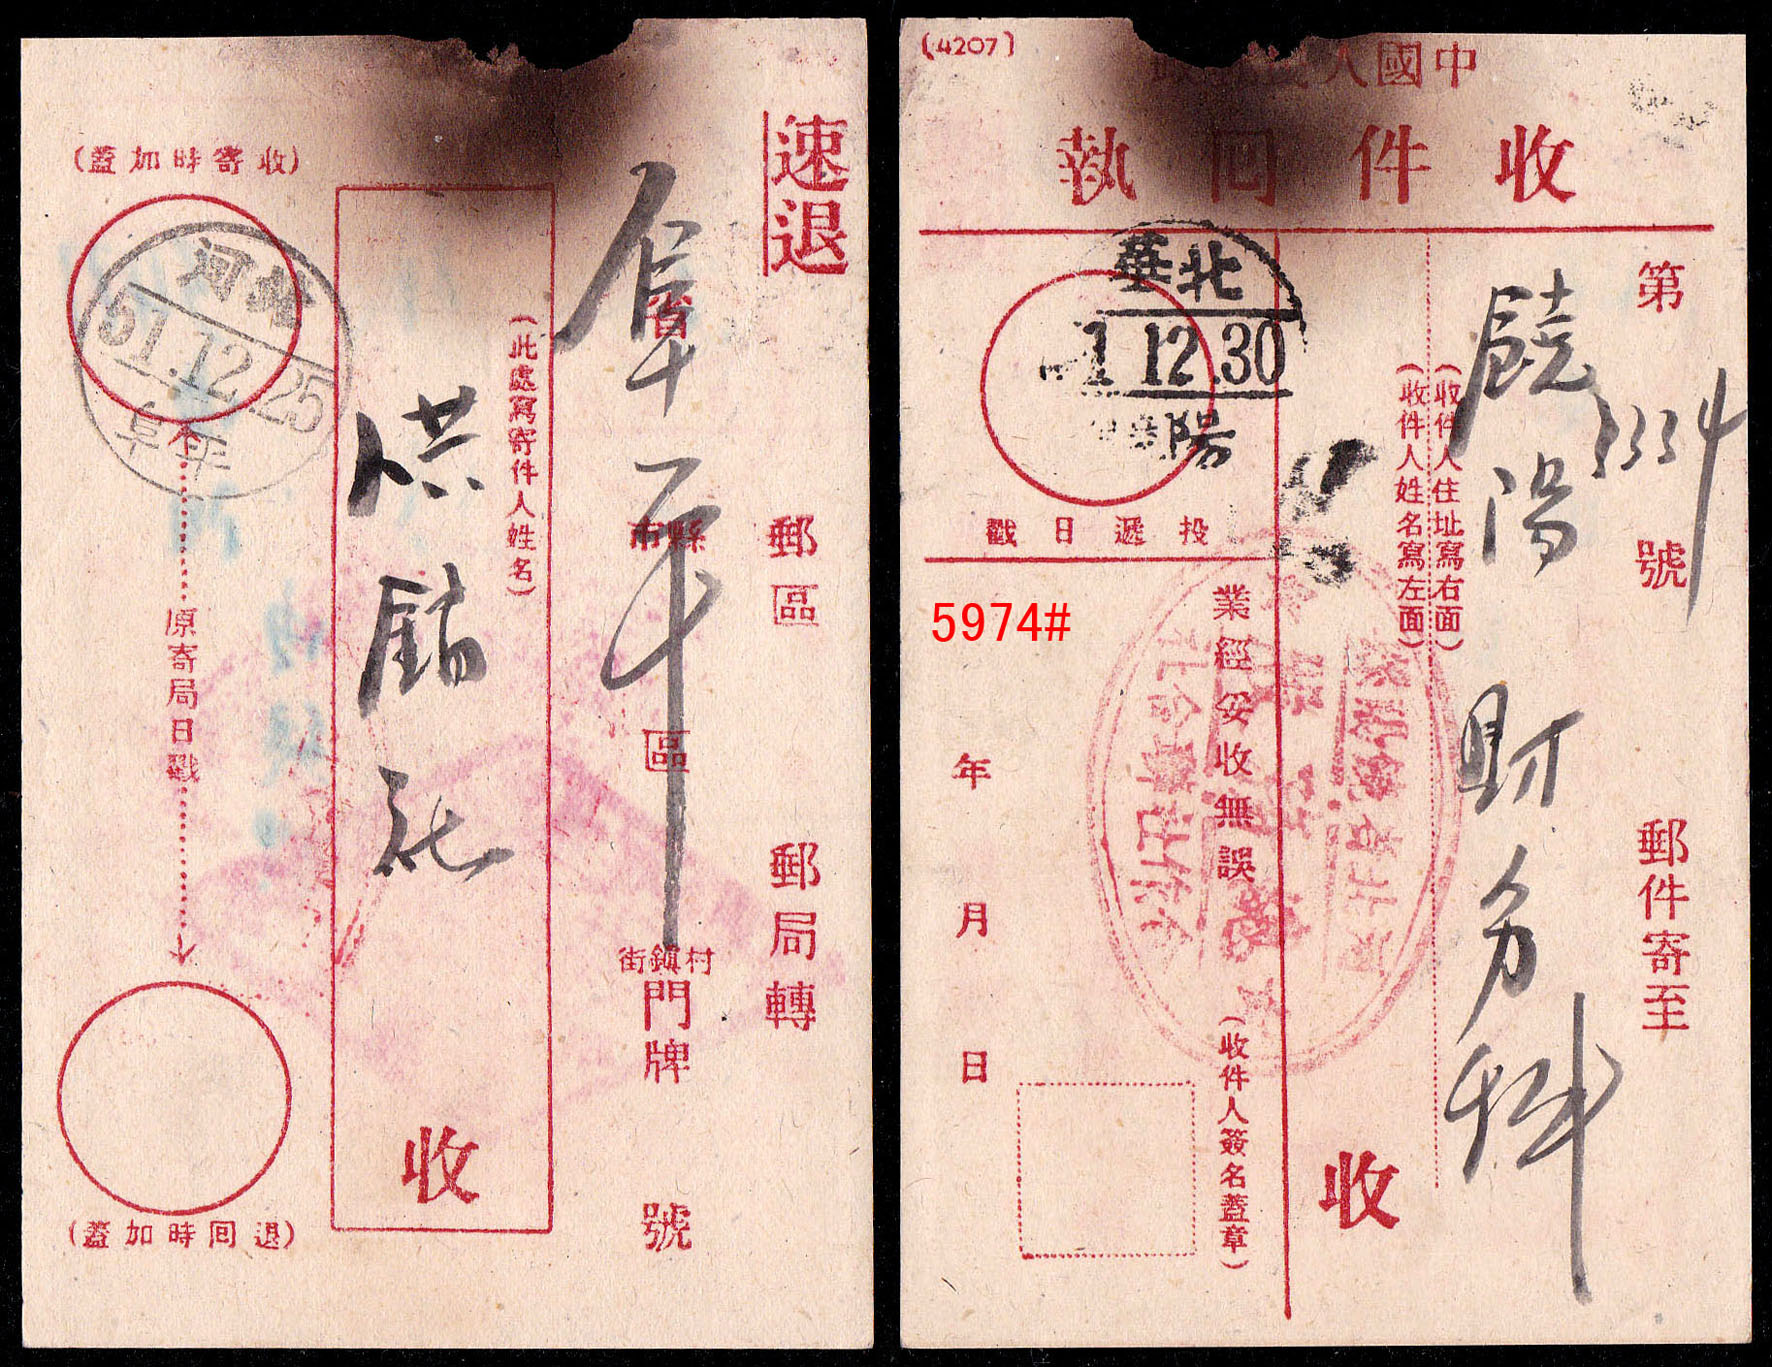 速退
郵區 郵局轉
省 市縣 區 街鎮村 門牌 號
阜平
(此處寫寄件人姓名)
供銷社
收
(收寄時加蓋)
河北
51.12.25
阜平
原寄局日戳
(退回時加蓋)
(4207)
中國人
收件回執
第 號 郵件寄至
334
饒陽財务科
(收件人住址寫右面)
(收件人姓名寫左面)
收
華北
1 12.30
陽
投遞日戳
業經妥收無誤
(收件人簽名蓋章)
年 月 日
5974#